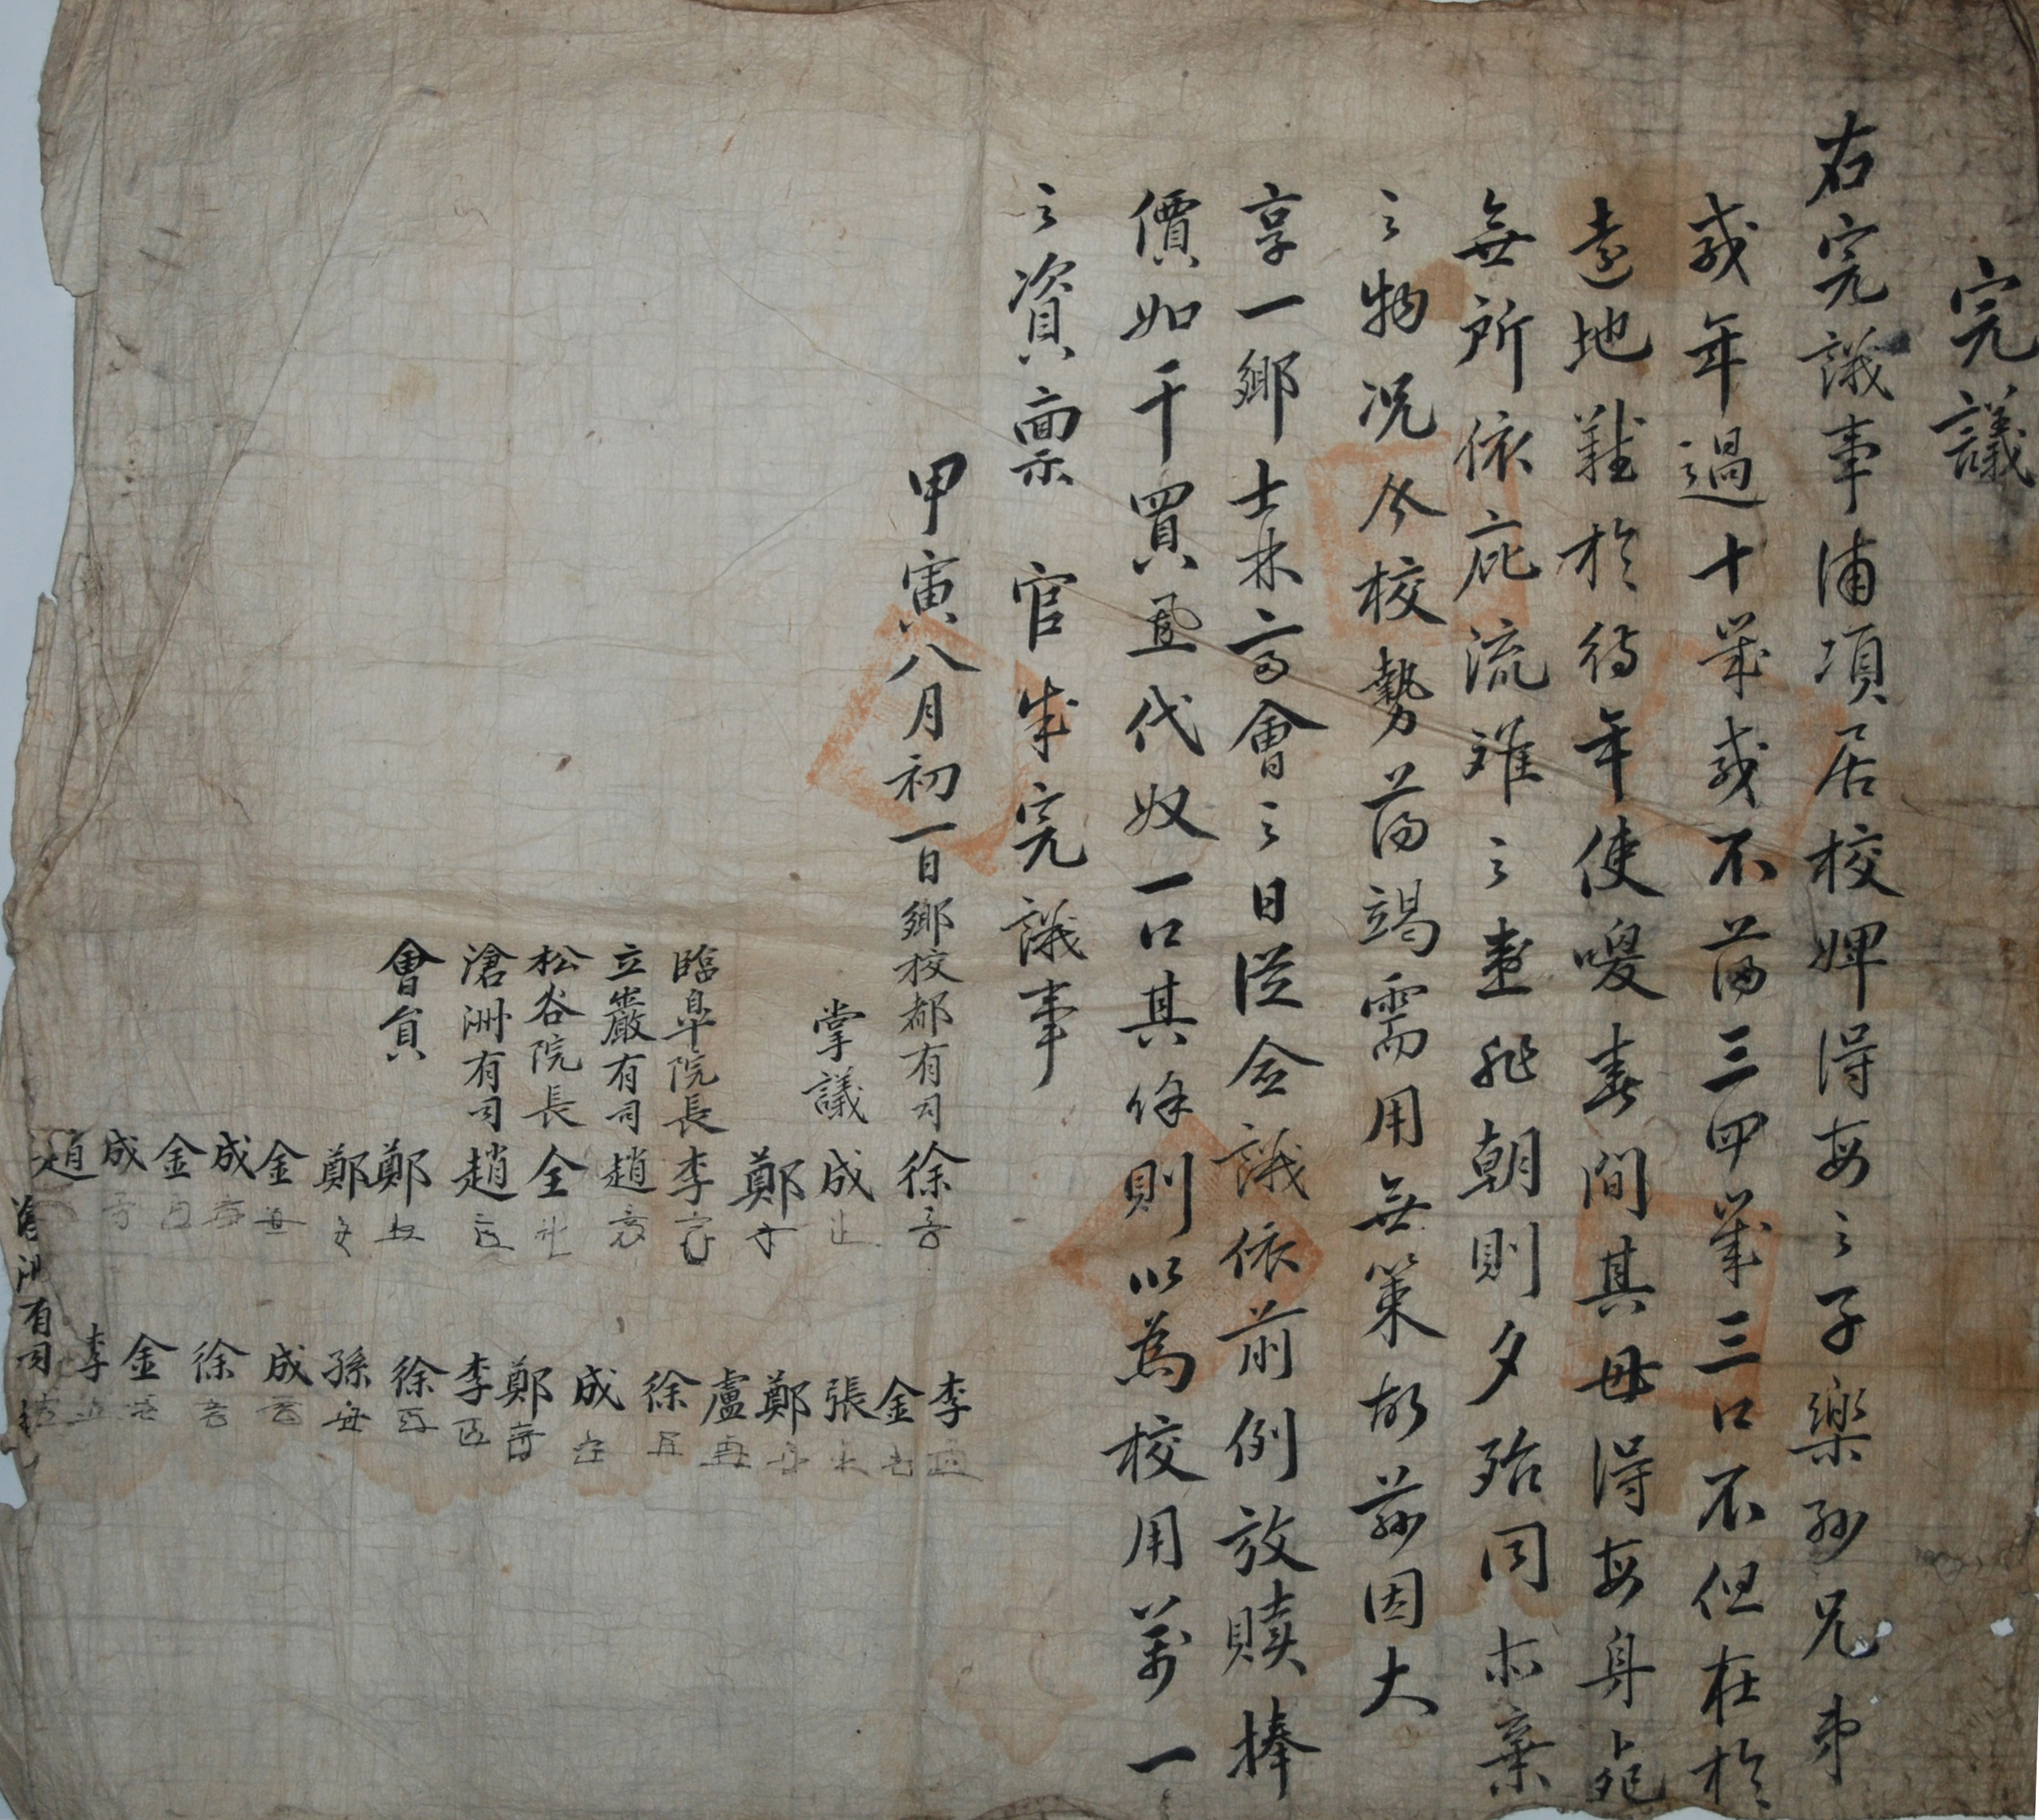 完議
右完議事浦項居校婢得每之子樂孫兄弟
或年過十歲或不滿三四歲三口不但在於
遠地難於待年使喚春間其母得每身死
無所依庇流離之患非朝則夕殆同亦棄
之物況今校勢蕩竭需用無策故玆因大
享一鄉士林齊會之日從僉議依前例放贖捧
價如干買置代奴一口其餘則以為校用萬一
之資稟 官成完議事
甲寅八月初一日鄉校都有司徐
掌議成
鄭
臨皐院長李
立巖有司趙
松谷院長全
滄洲有司趙
會員鄭
鄭
金
成
金
成
趙
李
金
張
鄭
盧
徐
成
鄭
李
徐
孫
成
徐
金
李
滄洲有司